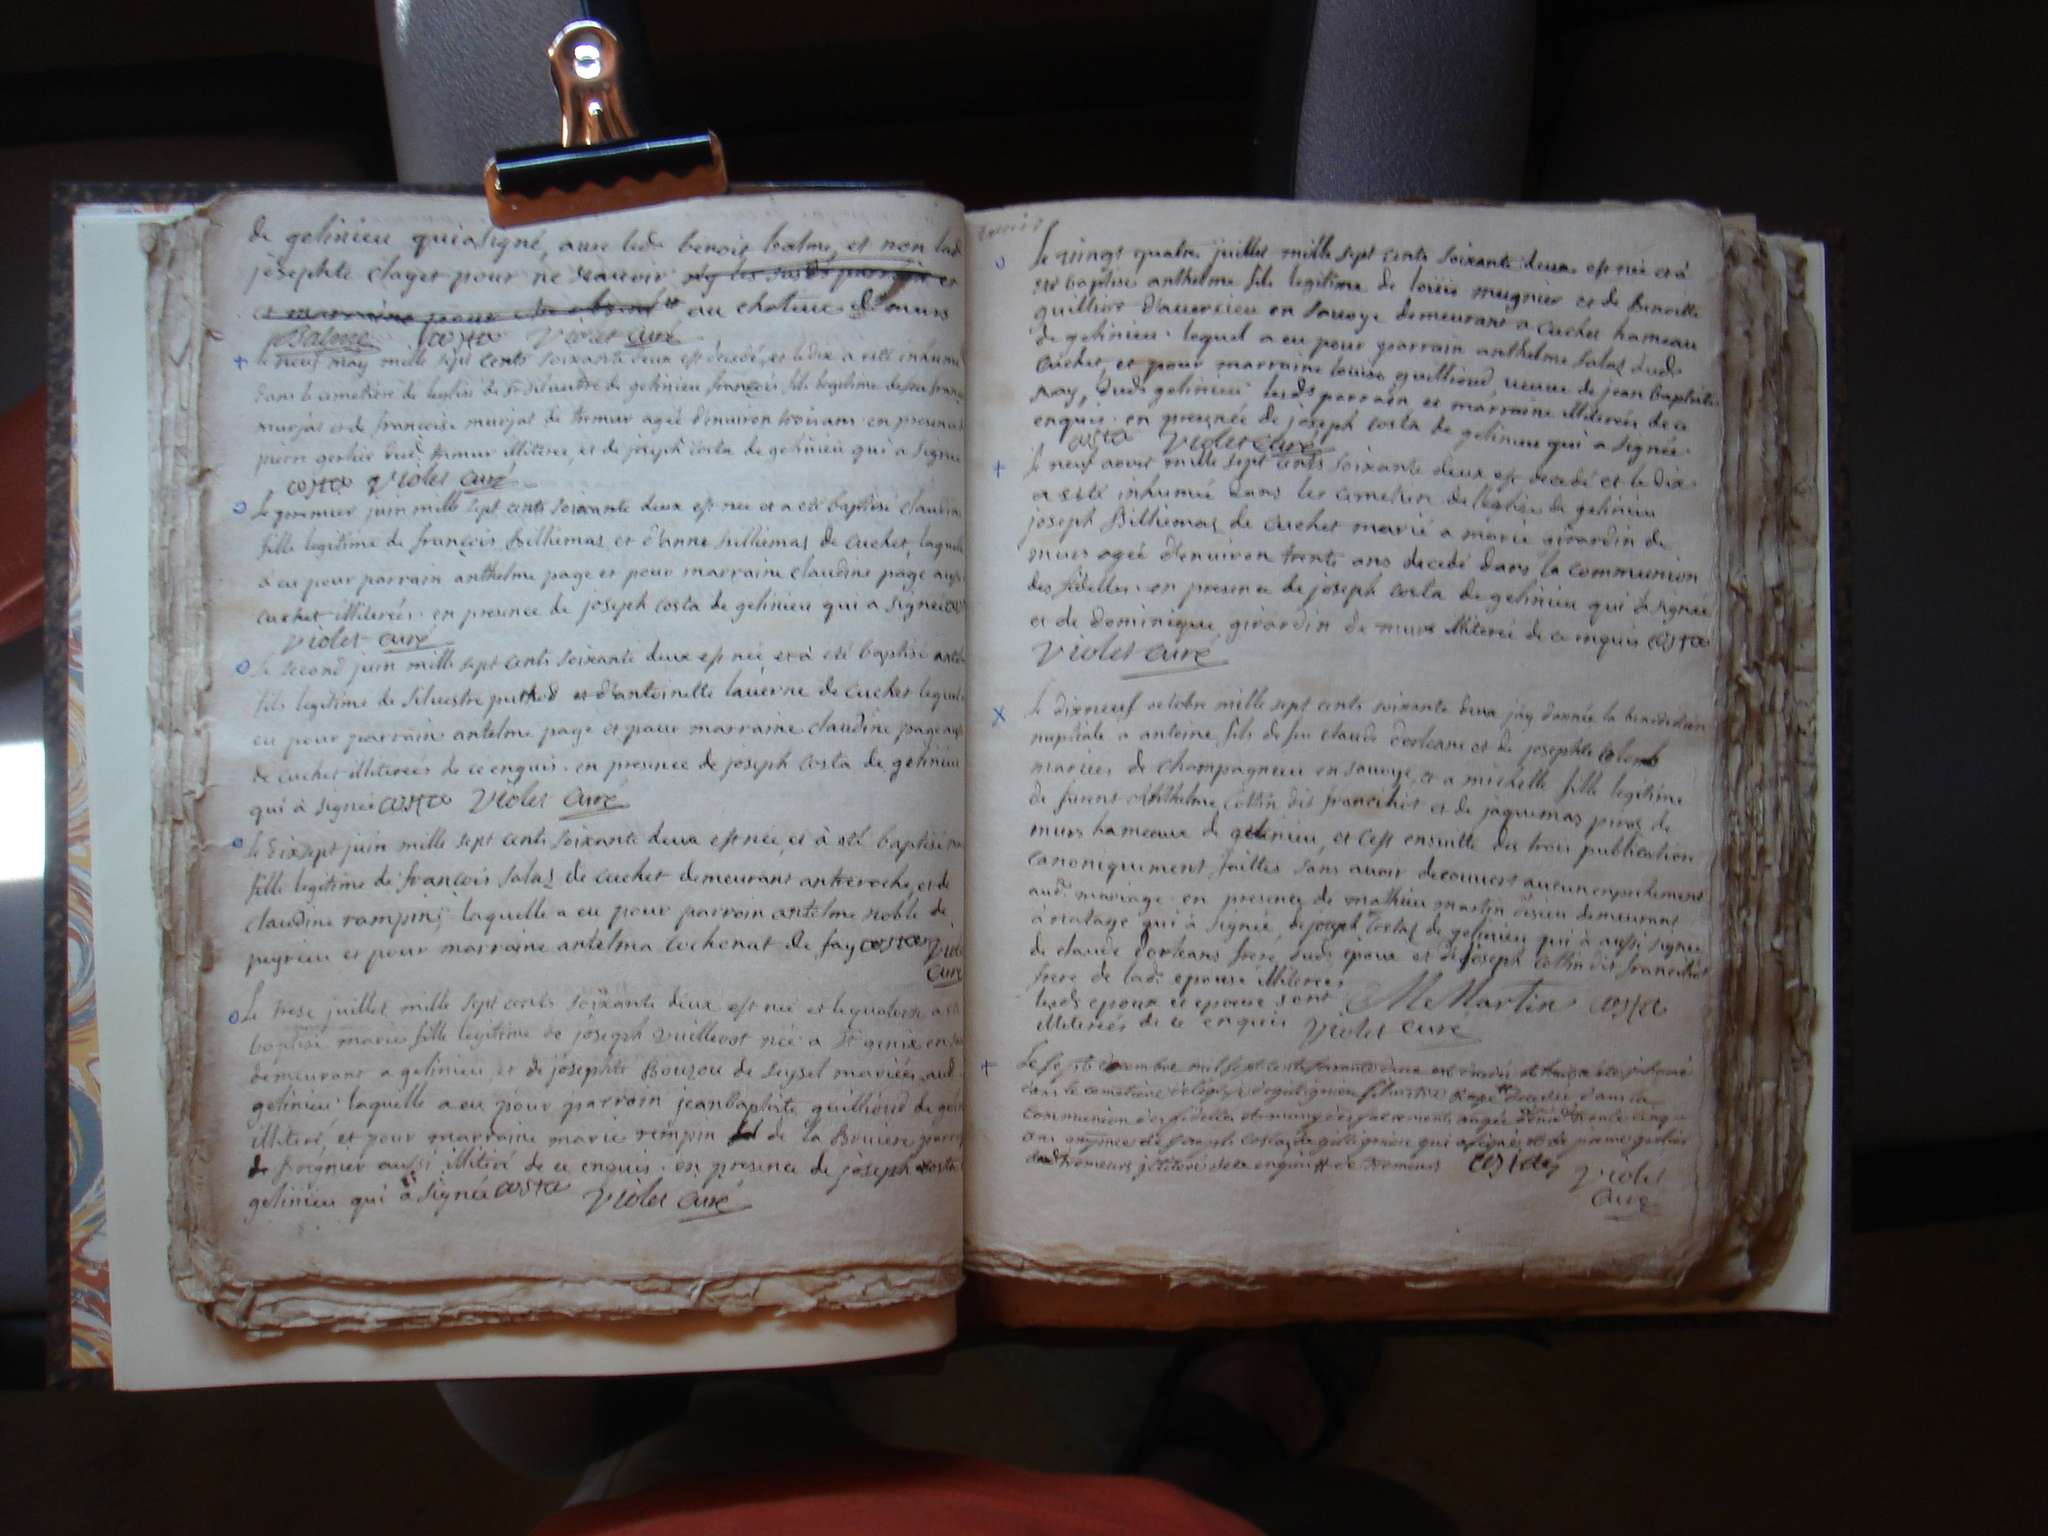 de gelinieu qui a signé, avec ledt benoit balme, et non lad
josephte claget pour ne scavoir
au chateau de murs
Balme costa Violet curé
le neuf may mille sept cents soixante deux est décedé, et le dix a esté inhumé
dans le cemetière de leglise de St silvestre de gelinieu francois, fils legitime de feu
murjas et de francoise murjas de tremur agé d'environ trois ans. en presence
pierre gerlier dud. tremur illiteré, et de joseph costa de gelinieu qui a signé
costa Violet curé
Le premier juin mille sept cents soixante deux est nee et a été baptisé claudine
fille legitime de francois Billiemas et d'anne billiemas de cuchet, laquelle
a eu pour parrain anthelme page et pour marraine claudine page
cuchet illiterés. en presence de joseph costa de gelinieu qui a signée
Violet curé
Le second juin mille sept cents soixante deux est née et à été baptisé
fils legitime de silvestre et d'antoinette laverne de cuchet lequel
eu pour parrain antelme page et pour marraine claudine page
de cuchet illiterées de ce enquis. en presence de joseph costa de gelinieu
qui à signée costa Violet Curé
Le dixsept juin mille sept cents soixante deux est née, et à été baptisé
fille legitime de francois salaz de cuchet demeurant et de
claudine rampin, laquelle a eu pour parrain antelme noble de
peyrieu et pour marraine antelma cochenat de fay costa
Curé
Le trese juillet mille sept cents soixante deux est née et le quatorse a été
baptisé marie fille legitime de joseph vuillerot née a St genix en
demeurant a gelinieu, et de josephte Bouzou de seysel mariées aud
gelinieu. laquelle a eu pour parrain jean baptiste guillioud de
illiteré, et pour marraine marie rempin de la Bruiere
de aussi illiteré de ce enquis. en presence de joseph costa
gelinieu qui à signée costa Violet curé
Le vingt quatre juillet mille sept cents soixante deux est née et à
été baptisé anthelme fils legitime de louis mugnier et de Benoitte
guilliot d'avressieu en savoye demeurant a cuchet hameau
de gelinieu. lequel a eu pour parrain anthelme salaz dud.
cuchet, et pour marraine louise guillioud veuve de jean baptiste
ray, dud. gelinieu. lesds parrain et marraine illiterés de ce
enquis. en presence de joseph costa de gelinieu qui a signée.
costa Violet curé
Le neuf aout mille sept cents soixante deux est decedé et le dix
a esté inhumé dans le cemetiere de l'église de gelinieu
joseph Billiemaz de cuchet marié a marie girardin de
murs agée d'environ trente ans decedé dans la communion
des fidelles. en presence de joseph costa de gelinieu qui à signée
et de dominique girardin de murs illiteré de ce enquis costa
Violet curé
Le dixneuf octobre mille sept cents soixante deux jay donnée la benediction
nuptiale a antoine fils de feu claude d'orleans et de josephte colomb
mariées de champagneux en savoye, et a michelle fille legitime
de furent anthelme Cottin dit francihot et de jaquemas de
murs hameaux de gelinieu, et c'est ensuitte des trois publication
canoniquement faittes sans avoir decouvert aucun enpechement
aud. mariage. en presence de mathieu martin desieu demeurant
à natage qui à signée, de joseph costaz de gelinieu qui à aussi signée
de claude d'orleans frere dud. epoux et de joseph Cottin dit francihot
frere de lad. epouse illiterées
lesds epoux et epouse sont MMartin costa
illiterées de ce enquis Violet curé
Le sept mil sept cents soixante deux est decedé
dans le cemetiere de léglise silvestre Rage decedé dans la
communion des fidelles et muny des sacrements, angée trente cinq
ans presence de joseph costaz de gellignieu qui a signé et de pierre gerlier
jlliteré de ce enquis # de tremeurs costaz Violet
Curé